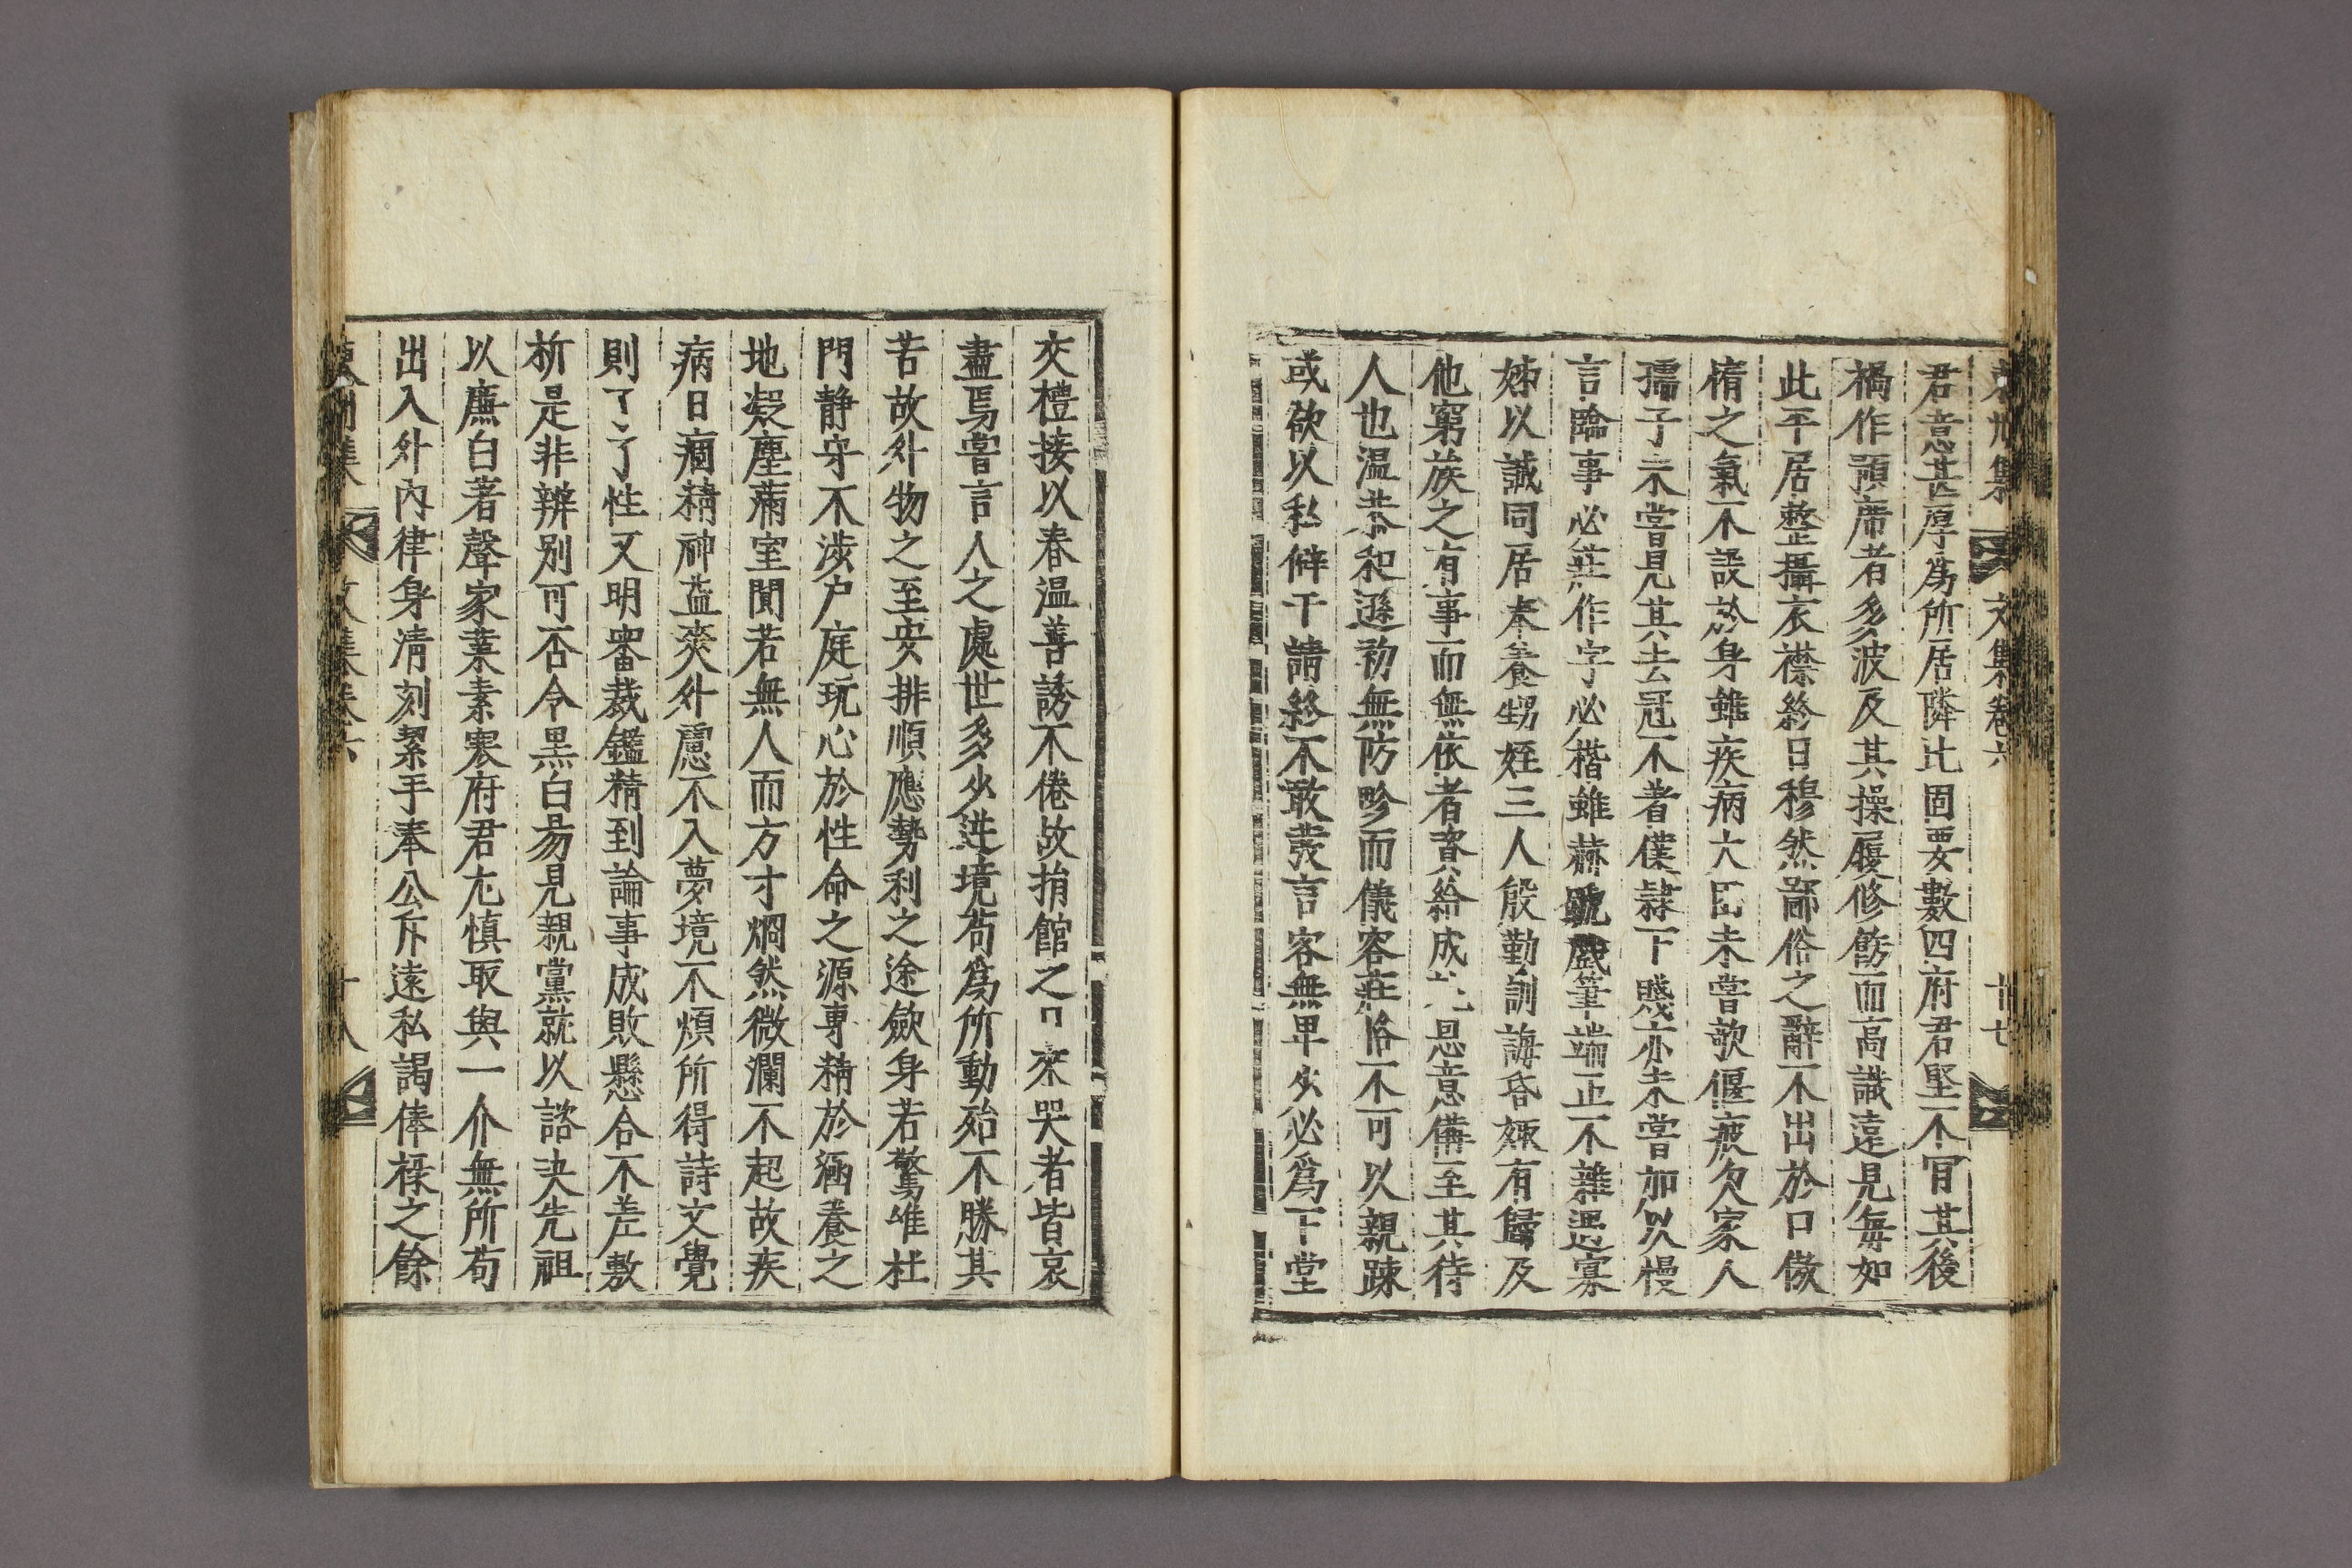 集 文集卷六 十七
君意甚厚爲所居隣比固要數四府君堅不肎其後
禍作預席者多波及其操履修飭而高識遠見每如
此平居整攝衣襟終日穆然鄙俗之辭不出於口傲
惰之氣不設於身雖疾病大臣未嘗欹偃疲勾家人
孺子未嘗見其去冠不著僕隷下賤亦未嘗加以慢
言臨事必莊作字必楷雖赫蹏戲筆端正不雜遇寡
姊以誠同居奉養甥姪三人殷勤訓誨昏娵有歸及
他窮族之有事而無依者賚給成 恩意備至其待
人也温恭和遜初無防畛而儀容莊恪不可以親踈
或欲以私僻干請終不敢發言客無卑少必爲下堂
交禮接以春温善誘不倦故捐館之 來哭者皆哀
盡焉嘗言人之處世多少進境苟爲所動殆不勝其
苦故外物之至安排順應勢利之途歛身若驚唯杜
門静守不涉户庭玩心於性命之源專精於涵養之
地凝塵滿室闃若無人而方寸烱然微瀾不起故疾
病日痼精神益爽外慮不入夢境不煩所得詩文覺
則了了性又明審裁鑑精到論事成敗懸合不差敷
析是非辨别可否令黒白昜見親黨就以諮决先祖
以廉白著聲家業素寒府君尤慎取與一介無所苟
出入外內律身清刻潔手奉公斥遠私謁俸祿之餘
集 文集卷六 十八